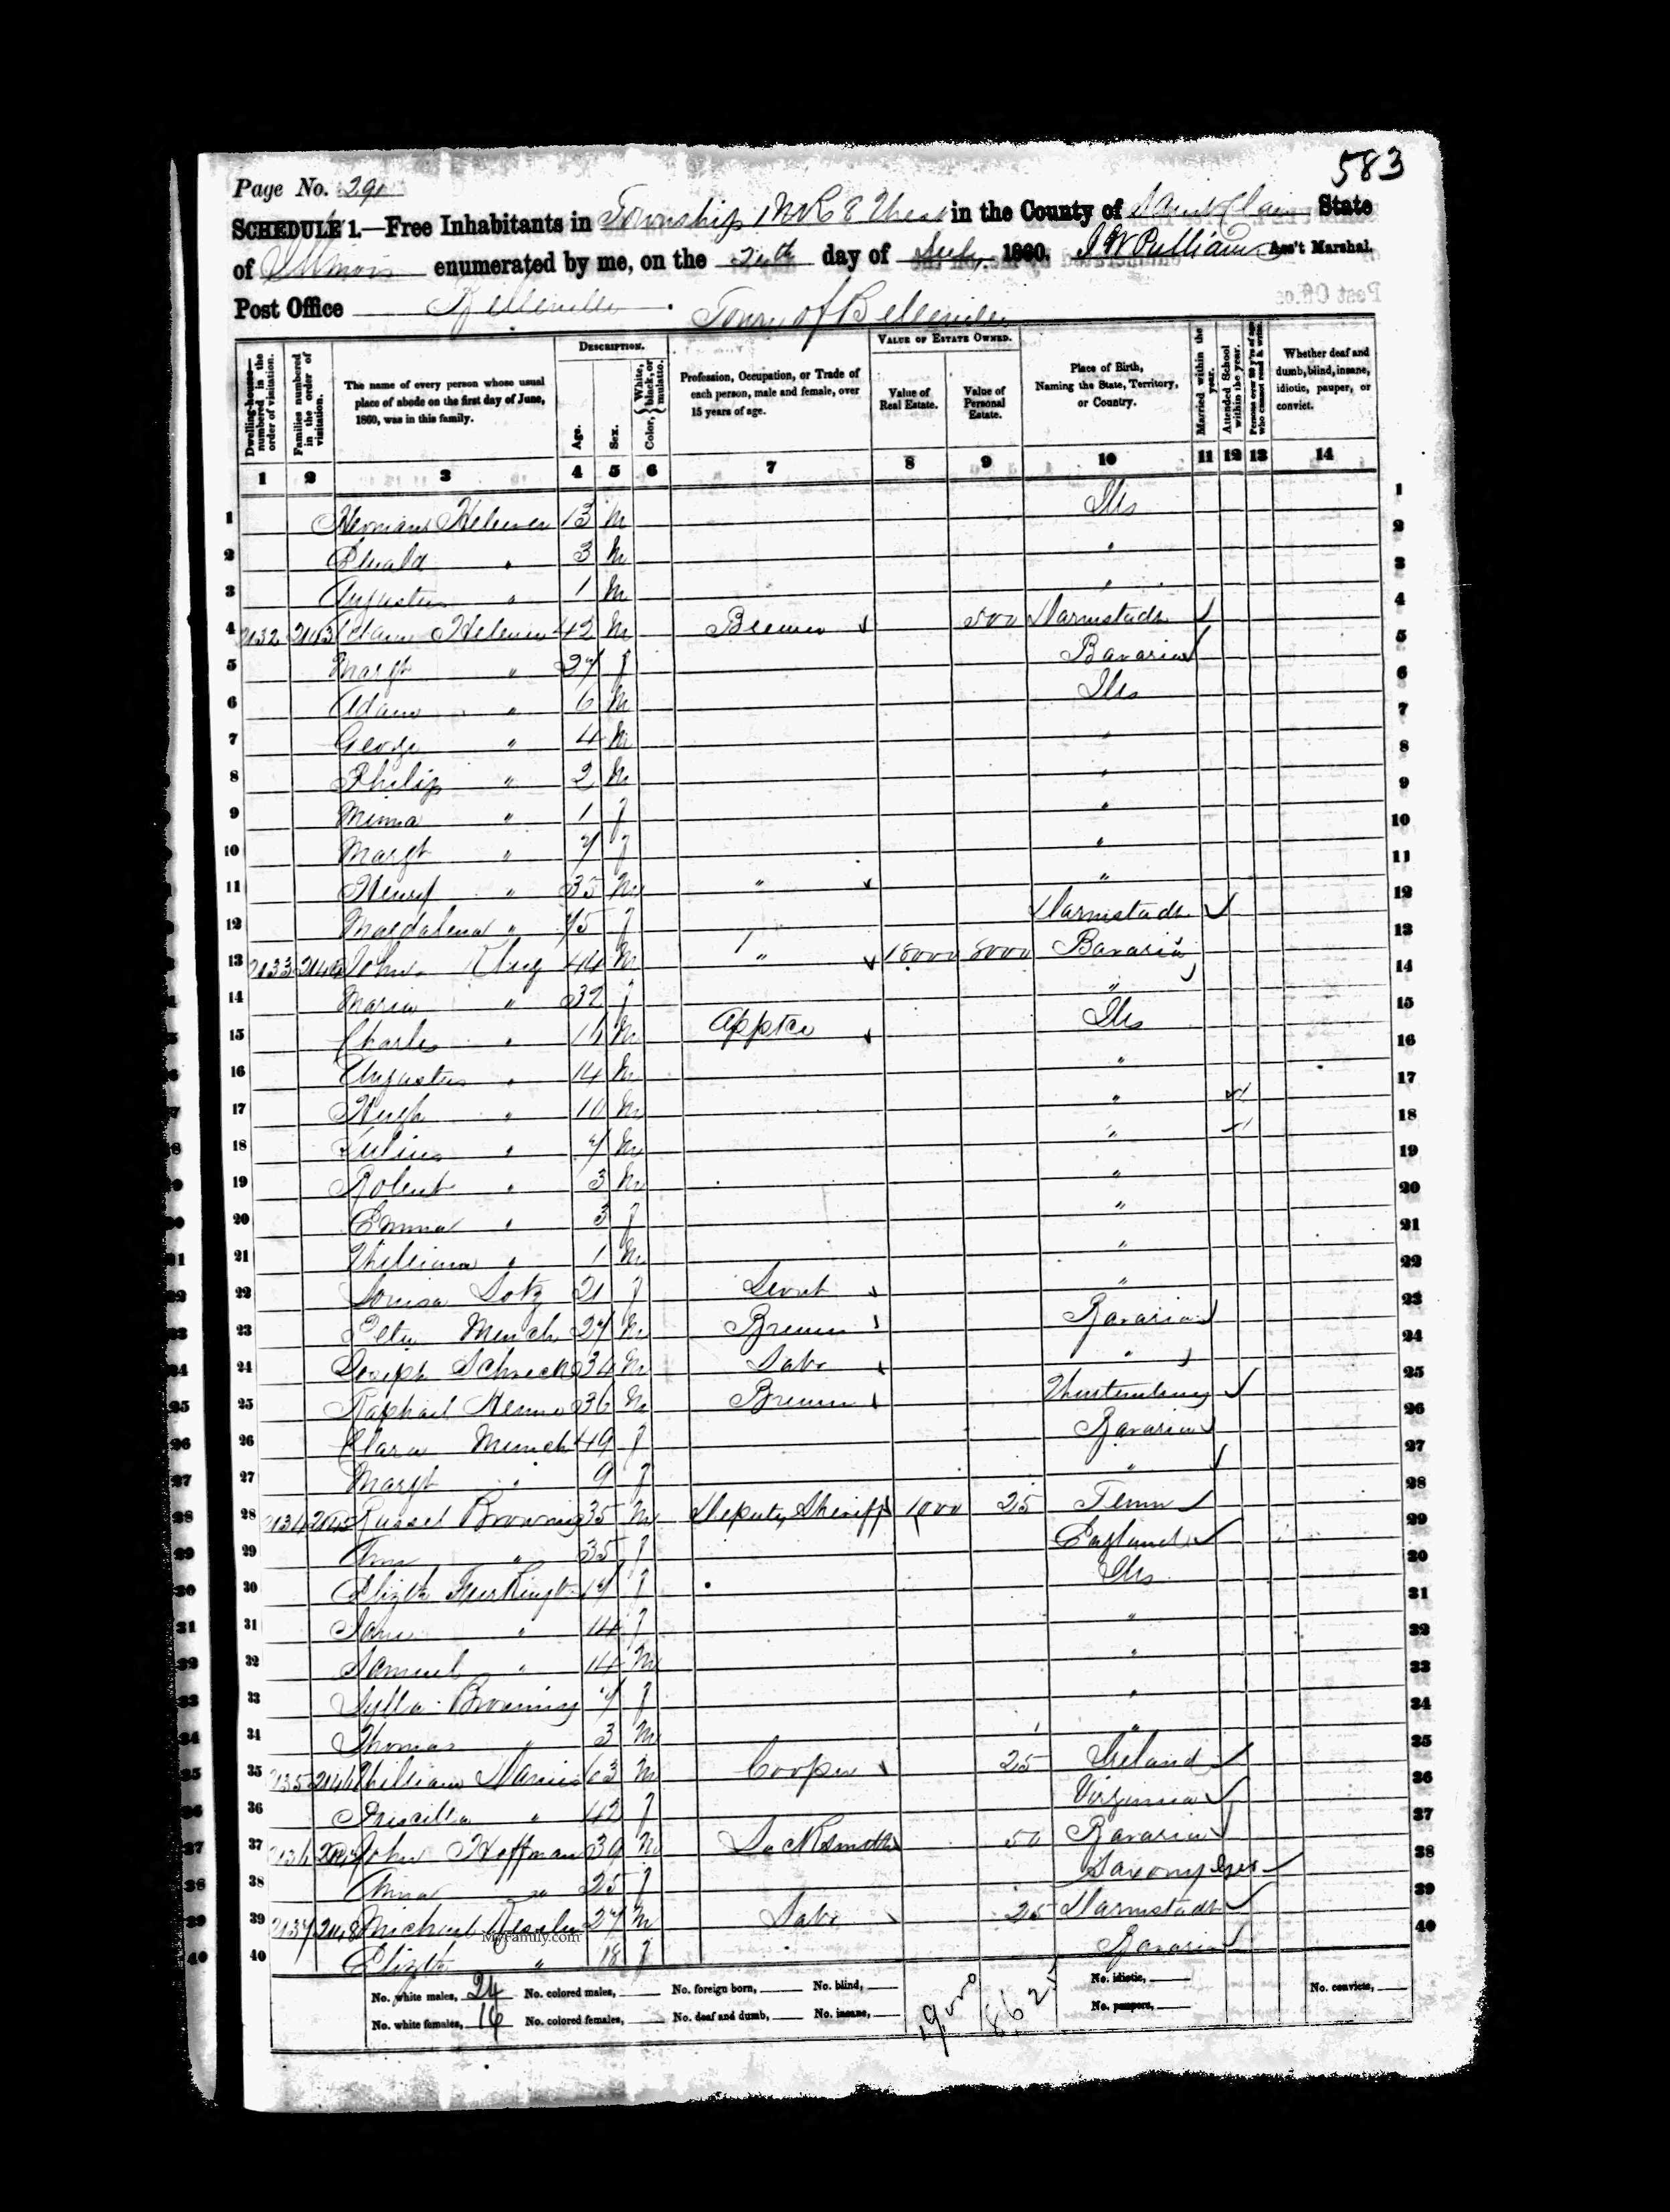 583
Page No. 291
SCHEDULE 1.—Free Inhabitants in Township 1 N R 8 West in the County of Saint Clair State
of Illinois enumerated by me, on the 24th day of July 1860. Ass't Marshal.
Post Office Belleville Town of Belleville
DESCRIPTION. VALUE OF ESTATE OWNED.
Dwelling-houses—numbered in the order of visitation. Families numbered in the order of visitation. The name of every person whose usual place of abode on the first day of June, 1860, was in this family. Age. Sex. Color, White, black, or mulatto. Profession, Occupation, or Trade of each person, male and female, over 15 years of age. Value of Real Estate. Value of Personal Estate. Place of Birth, Naming the State, Territory, or Country. Married within the year. Attended School within the year. Persons over 20 y'rs of age who cannot read & write. Whether deaf and dumb, blind, insane, idiotic, pauper, or convict.
1 2 3 4 5 6 7 8 9 10 11 12 13 14
1 13 M Ills 1
2 " 3 M " 2
3 Augustus " 1 M " 3
4 2132 2143 Adam 42 M Brewer 500 Darmstadt 4
5 Margt " 27 f Bavaria 5
6 Adam " 6 M Ills 6
7 George " 4 M " 7
8 Philip " 2 M " 8
9 Minna " 1 f " 9
10 Margt " 7 f " 10
11 Henry " 35 M " " 11
12 Magdalena " 75 f Darmstadt 12
13 2133 2144 John 44 M " 18000 8000 Bavaria 13
14 Maria " 32 f " 14
15 Charles " 16 M Apptce Ills 15
16 Augustus " 14 M " 16
17 Hugh " 10 M " 17
18 Julius " 7 M " 18
19 Robert " 3 M " 19
20 Emma " 3 f " 20
21 William " 1 M " 21
22 Louisa Lotz 21 f Servt " 22
23 Peter Munch 27 M Brewer Bavaria 23
24 Joseph Schreck 34 M Labr " 24
25 Raphael 36 M Brewer Wurtemburg 25
26 Clara Munch 49 f Bavaria 26
27 Margt " 9 f " 27
28 2134 2145 Russel Browning 35 M Deputy Sheriff 1000 25 Tenn 28
29 Ann " 35 f England 29
30 Elizth 17 f Ills 30
31 Jane " 14 f " 31
32 Samuel " 14 M " 32
33 Browning 7 f " 33
34 Thomas " 3 M " 34
35 2135 2146 William 63 M Cooper 25 Ireland 35
36 Priscilla " 42 f Virginia 36
37 2136 2147 John Hoffman 39 M Locksmith 50 Bavaria 37
38 Anna " 25 f Saxony 38
39 2137 2148 Michael 27 M Labr 25 Darmstadt 39
40 Elizth " 18 f Bavaria 40
MyFamily.com
No. white males, 24 No. colored males, No. foreign born, No. blind, 19000 8625 No. idiotic, No. convicts,
No. white females, 16 No. colored females, No. deaf and dumb, No. insane, No. paupers,